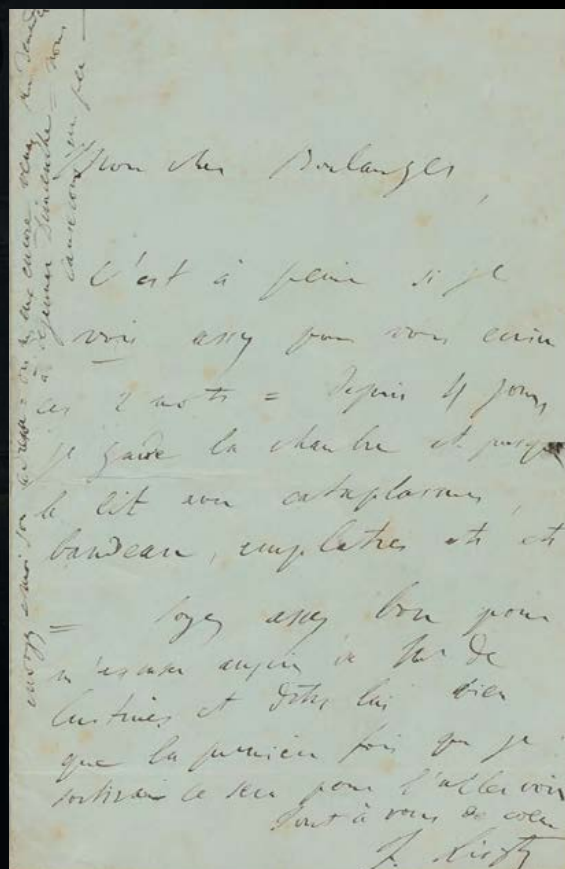 Mon cher Boulanger,
C'est à peine si je
vois assez pour vous écrire
ces 2 mots = Depuis 4 jours
je garde la chambre et presque
le lit avec cataplasmes,
bandeau, emplâtres etc etc
= Soyez assez bon pour
m'excuser auprès de Mr de
Custines et dites lui bien
que la première fois que je
sortirai ce sera pour l'aller voir
Tout à vous de coeur
F. Liszt
envoyez moi son adresse = ou mieux encore venez
à déjeuner Dimanche = nous
causerons un peu